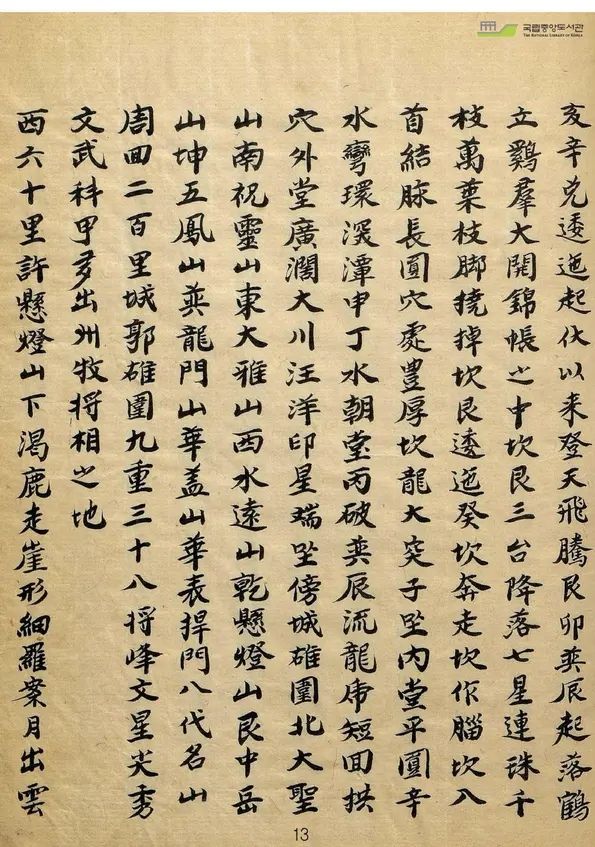 국립중앙도서관
THE NATIONAL LIBRARY OF KOREA
亥辛兌逶迤起伏以来登天飛騰艮卯巽辰起落鶴
立鷄羣大開錦帳之中坎艮三台降落七星連珠千
枝萬葉枝脚撓掉坎艮逶迤癸坎奔走坎作腦坎入
首結脉長圓穴處豊厚坎龍大突子坐內堂平圓辛
水彎環深潭申丁水朝堂丙破巽辰流龍虎短回拱
穴外堂廣濶大川汪洋印星瑞坐傍城雄圍北大聖
山南祝靈山東大雅山西水遠山乾懸燈山艮中岳
山坤五鳳山巽龍門山華盖山華表捍門八代名山
周回二百里城郭雄圍九重三十八将峰文星芙秀
文武科甲多出州牧将相之地
西六十里許懸燈山下渴鹿走崖形細羅案月出雲
13